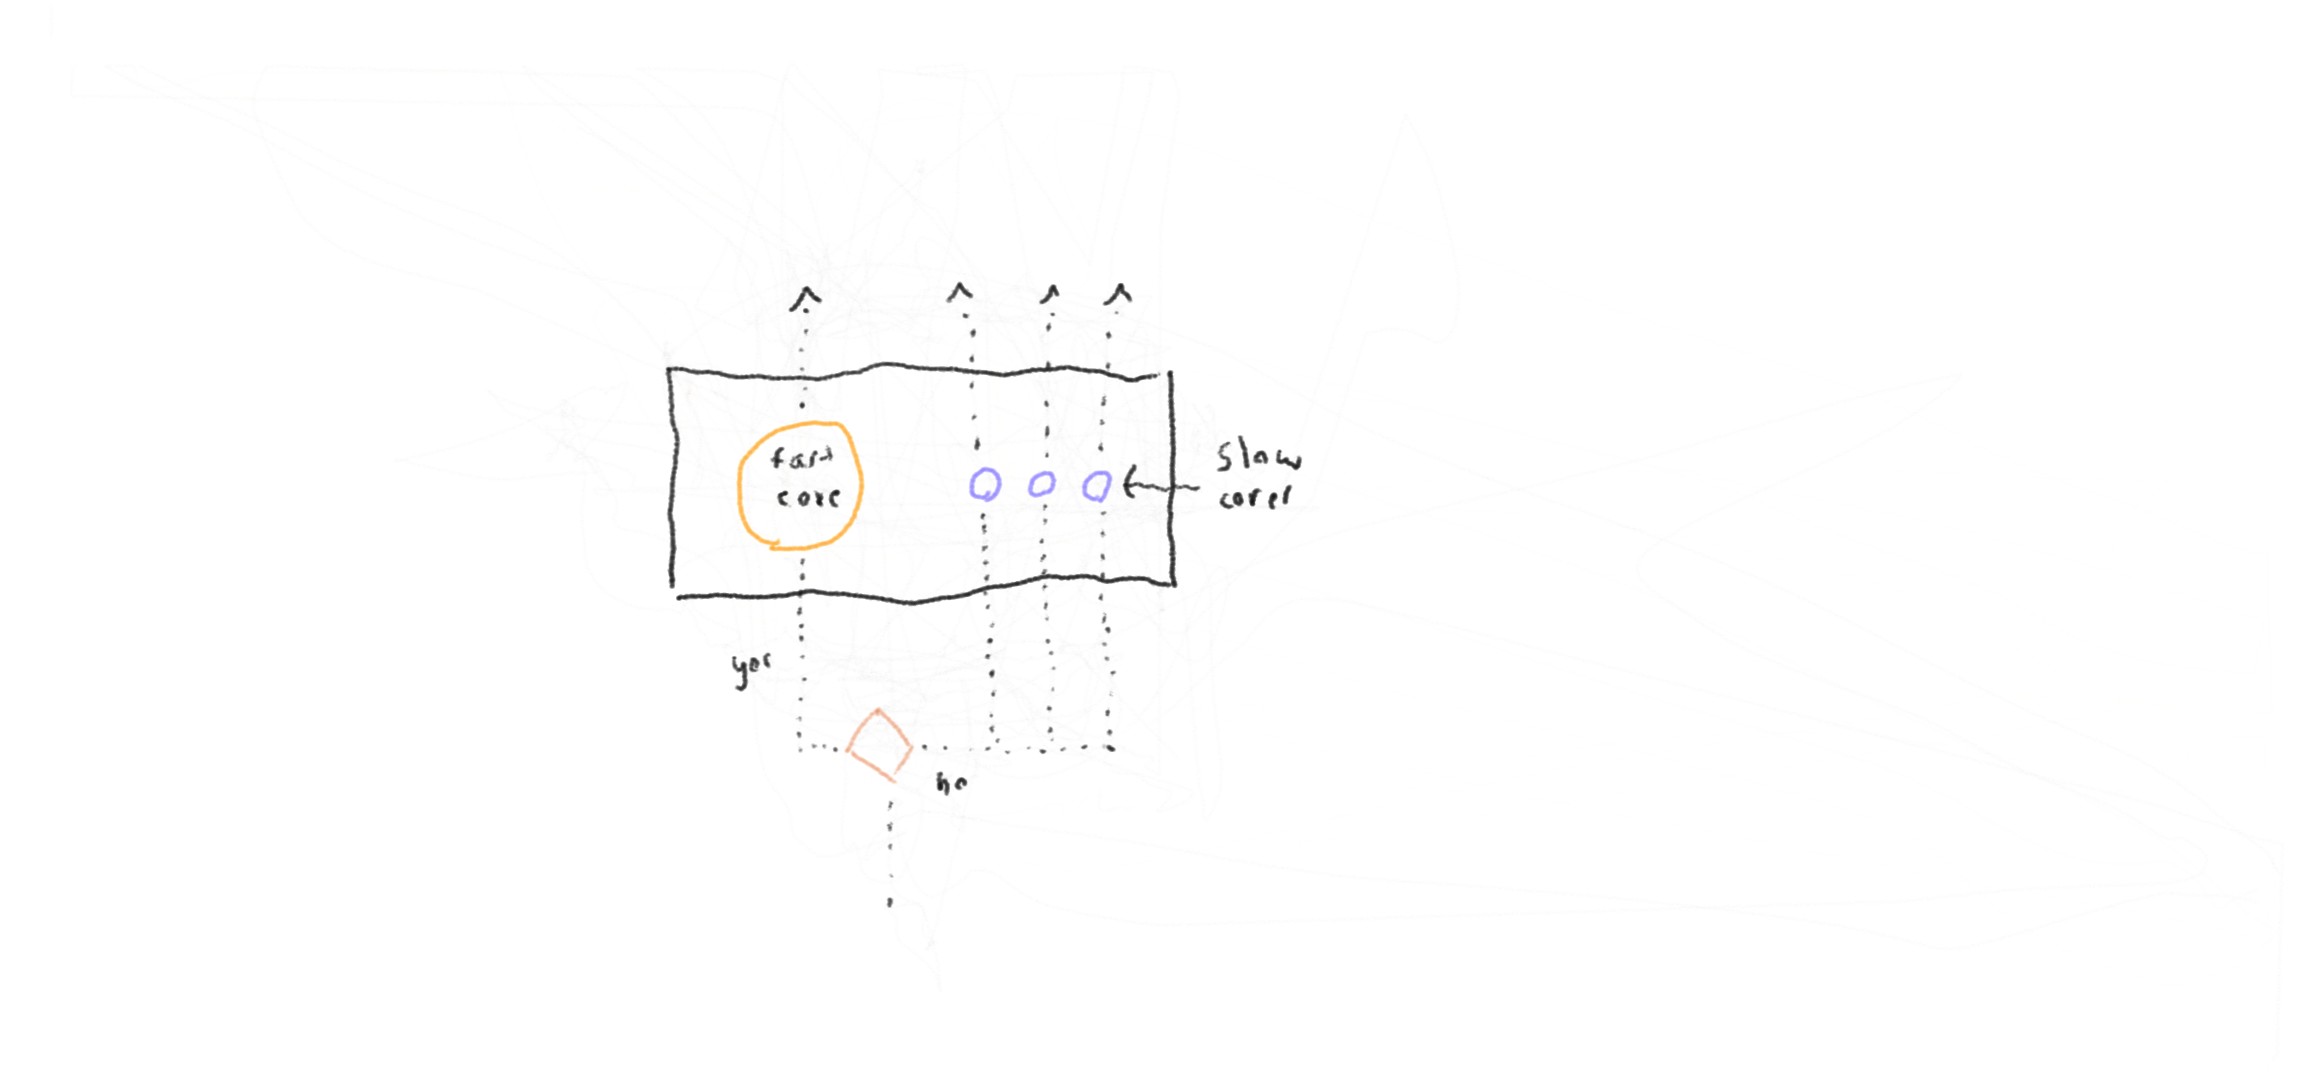 fast
core
slow
cores
yes
no